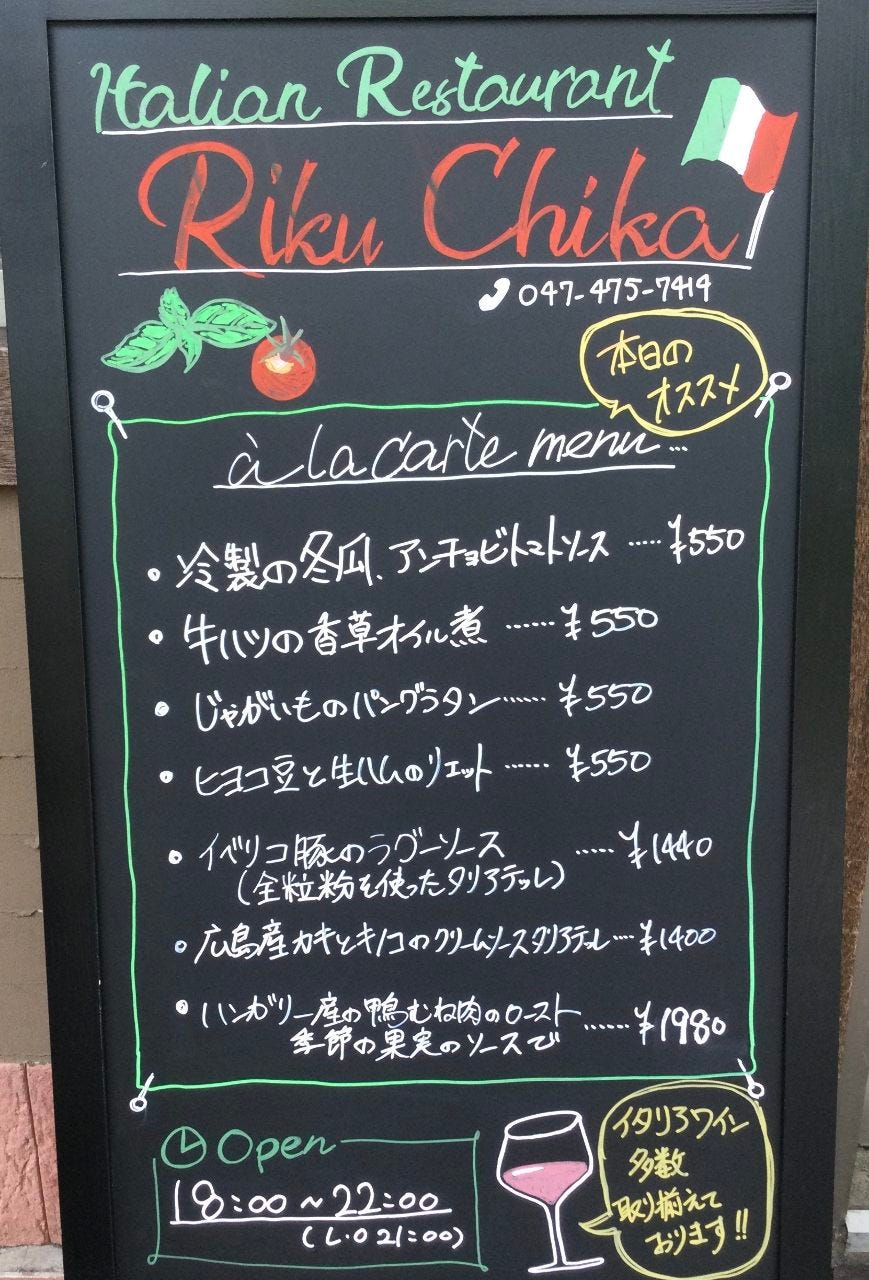 Italian Restaurant
Riku Chika
047-475-7414
本日の
オススメ
à la carte menu...
• 冷製の冬瓜、アンチョビトマトソース ..... ¥550
• 牛ハツの香草オイル煮 ...... ¥550
• じゃがいものパングラタン...... ¥550
• ヒヨコ豆と生ハムのリエット ...... ¥550
• イベリコ豚のラグーソース ...... ¥1440
(全粒粉を使ったタリアテッレ)
• 広島産カキとキノコのクリームソースタリアテッレ.... ¥1400
• ハンガリー産の鴨むね肉のロースト
季節の果実のソースで ...... ¥1980
Open
18:00~22:00
(L.O 21:00)
イタリアワイン
多数
取り揃えて
おります!!